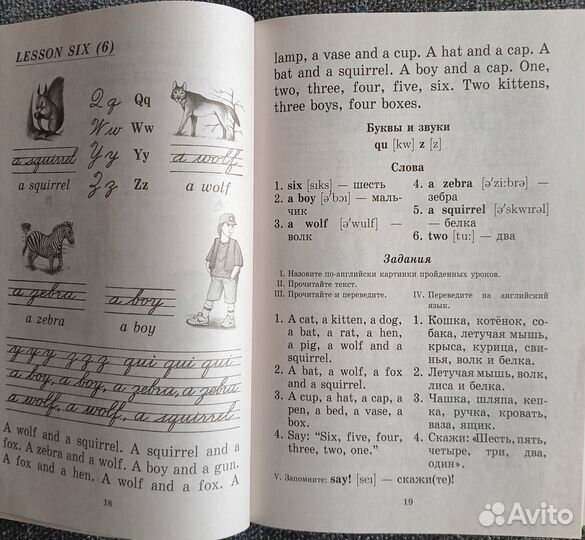 LESSON SIX (6)
Qq Qq
Ww Ww
Yy Yy
Zz Zz
a squirrel
a wolf
a squirrel
a wolf
a zebra
a boy
a zebra
a boy
y y y z z z qui qui qui
a boy, a boy, a zebra, a zebra
a wolf, a wolf, a squirrel
A wolf and a squirrel. A squirrel and a
fox. A zebra and a wolf. A boy and a gun.
A fox and a hen. A wolf and a fox. A
18
lamp, a vase and a cup. A hat and a cap. A
bat and a squirrel. A boy and a cap. One,
two, three, four, five, six. Two kittens,
three boys, four boxes.
Буквы и звуки
qu [kw] z [z]
Слова
1. six [sıks] — шесть
2. a boy [ə'bɔı] — маль-
чик
3. a wolf [ə'wulf] —
волк
4. a zebra [ə'zi:brə] —
зебра
5. a squirrel [ə'skwırəl]
— белка
6. two [tu:] — два
Задания
I. Назовите по-английски картинки пройденных уроков.
II. Прочитайте текст.
III. Прочитайте и переведите.
IV. Переведите на английский
язык.
1. A cat, a kitten, a dog,
a bat, a rat, a hen,
a pig, a wolf and a
squirrel.
2. A bat, a wolf, a fox
and a squirrel.
3. A cup, a hat, a cap, a
pen, a bed, a vase, a
box.
4. Say: “Six, five, four,
three, two, one.”
1. Кошка, котёнок, со-
бака, летучая мышь,
крыса, курица, сви-
нья, волк и белка.
2. Летучая мышь, волк,
лиса и белка.
3. Чашка, шляпа, кеп-
ка, ручка, кровать,
ваза, ящик.
4. Скажи: «Шесть, пять,
четыре, три, два,
один».
V. Запомните: say! [seı] — скажи(те)!
19
Avito